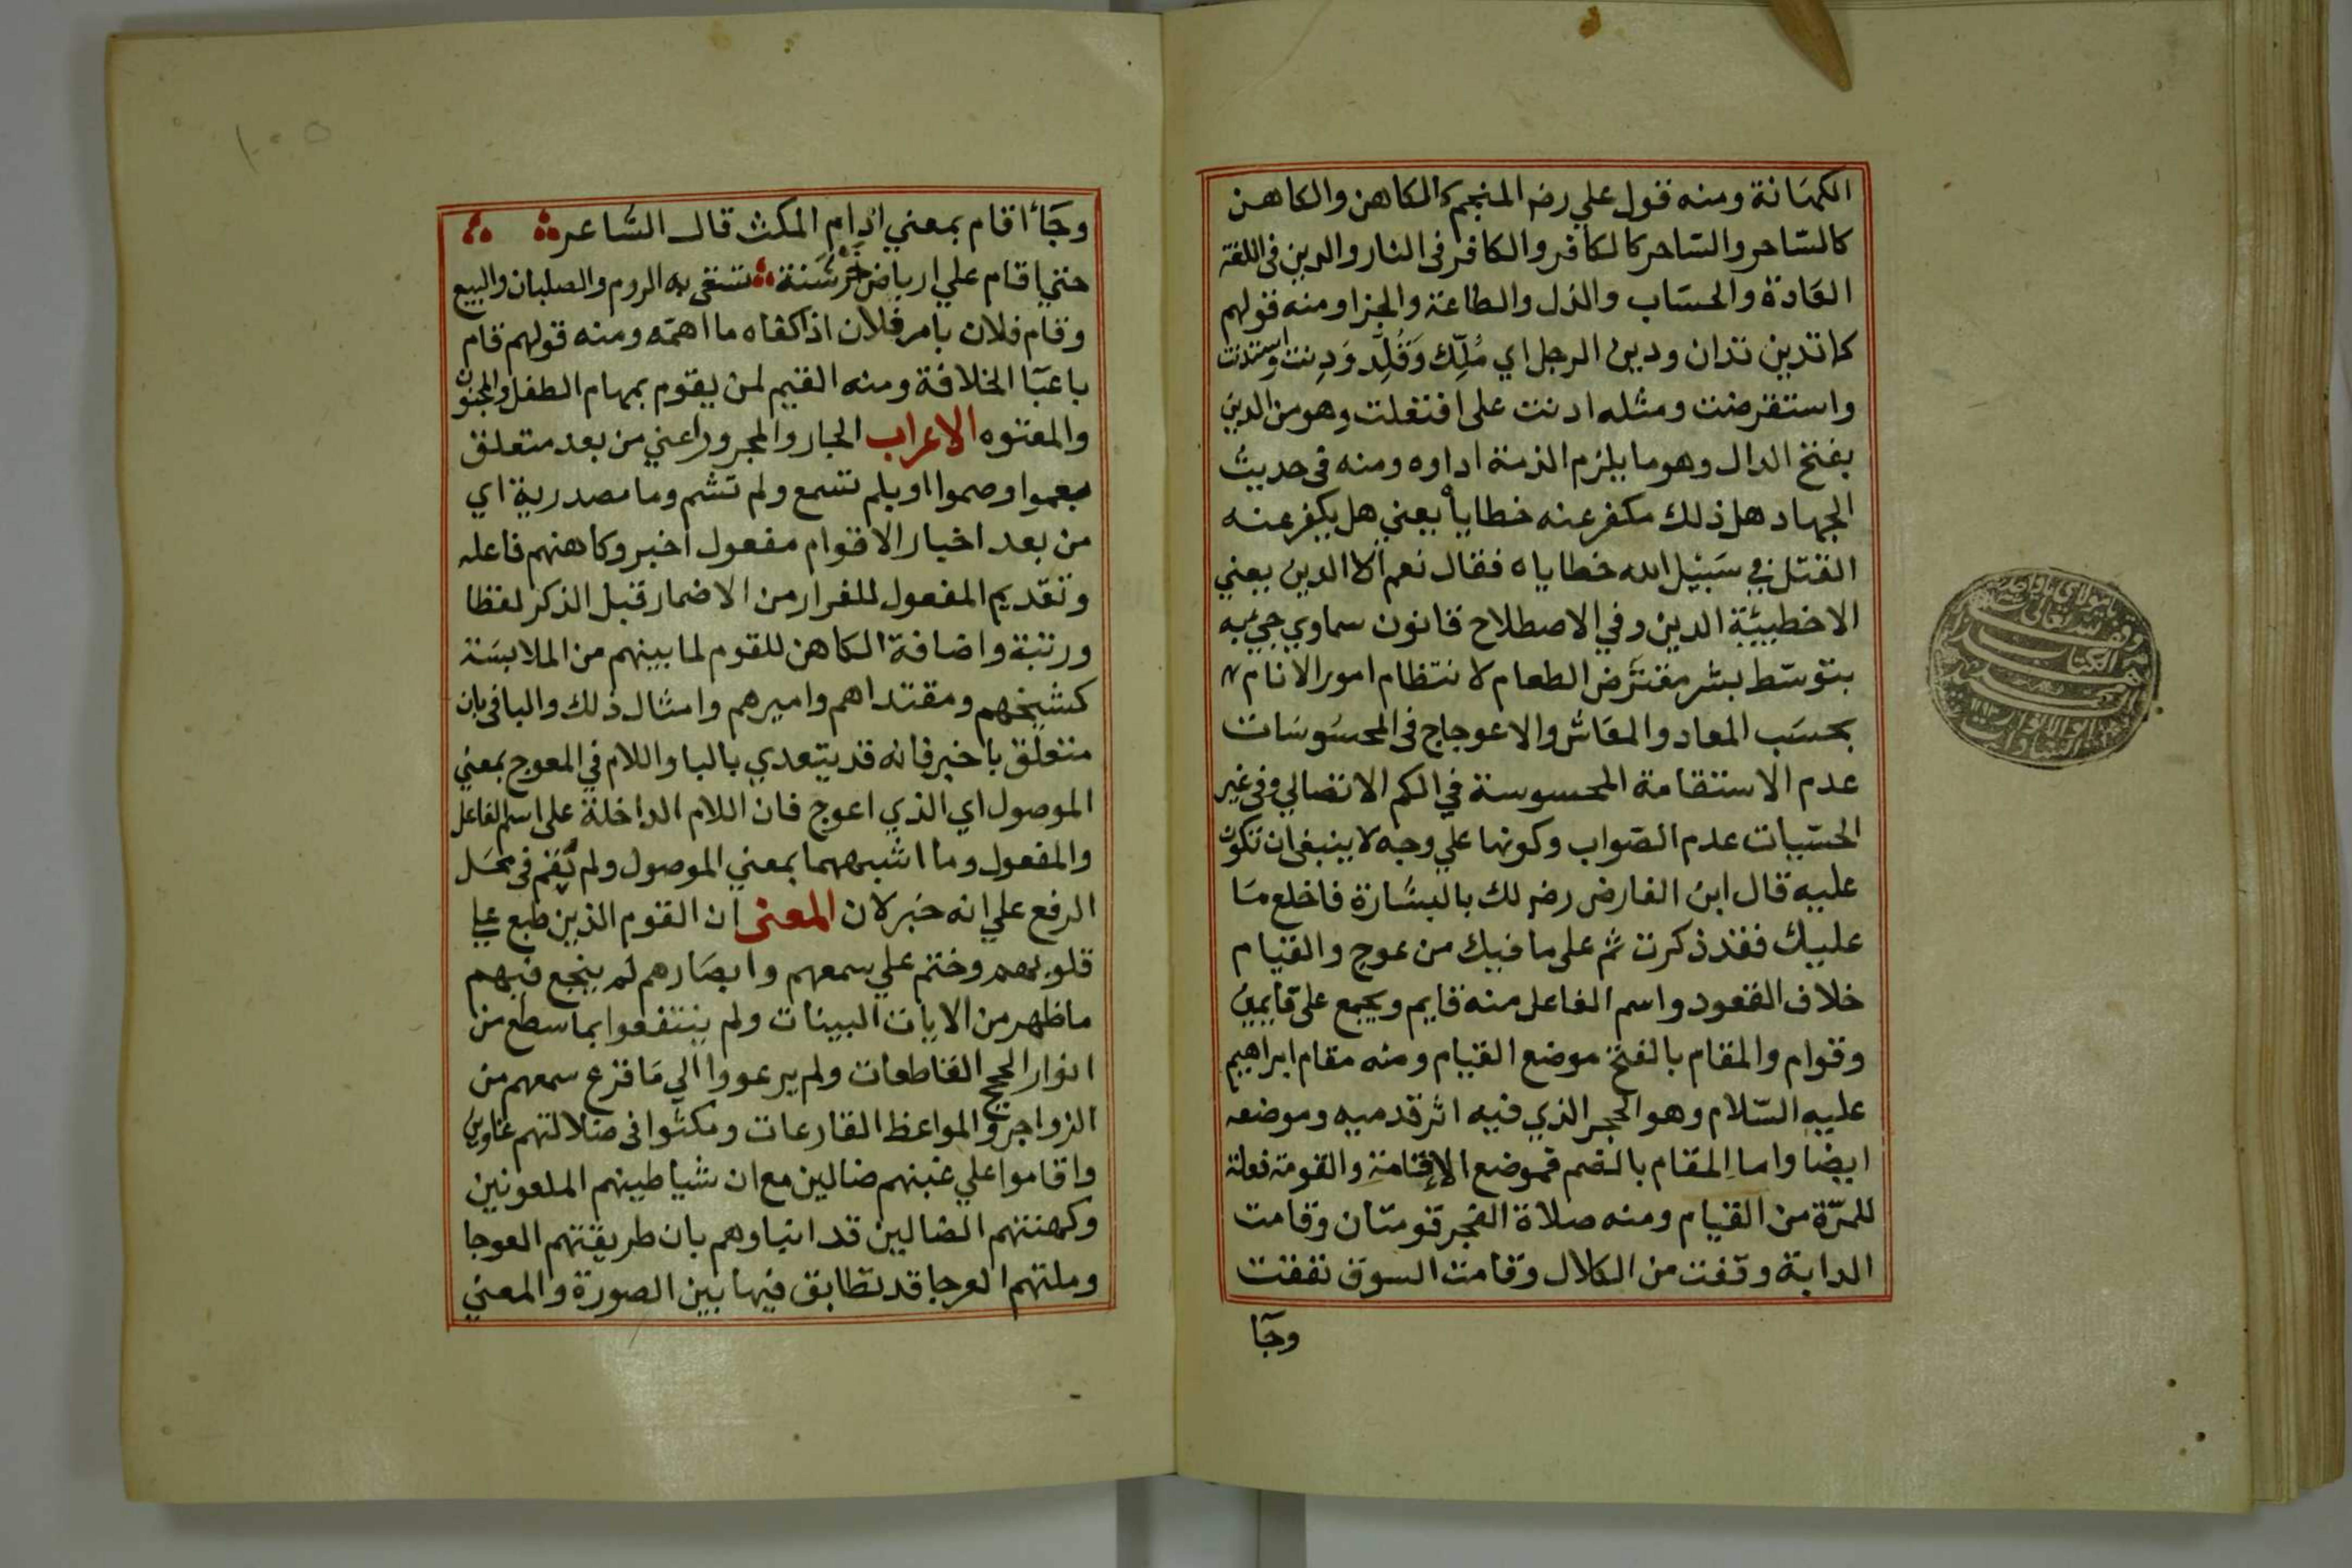 الكهَانة ومنه قول علي رضه المنجم كالكاهن والكاهن
كالسّاحر والسّاحر كالكافر والكافر فى النار والدين فى اللغة
العَادة والحسَاب والذل والطاعة والجزا ومنه قولهم
كما تدين تدان ودين الرجل اي مُلِّك وَقُلِّد وَدِنت واستدنت
واستقرضت ومثله ادنت على افتعلت وهو من الدين
بفتح الدال وهو ما يلزم الذمة اداوه ومنه فى حديث
الجهاد هل ذلك مكفر عنه خطاياه يعني هل يكفر عنه
القتل في سَبيل الله خطاياه فقال نعم الا الدين يعني
الا خطيئة الدين وفي الاصطلاح قانون سماوي جيء به
بتوسّط بشر مفترَض الطعام لانتظام امور الانام
بحسَب المعاد والمعَاش والاعوجاج فى المحسُوسَات
عدم الاستقامة المحسوسة في الكم الاتصالي وفى غير
الحسّيات عدم الصّواب وكونها علي وجه لا ينبغى ان تكون
عليه قال ابن الفارض رضه لك بالبشَارة فاخلع مَا
عليك فقد ذكرت ثم على ما فيك من عوج والقيام
خلاف القعود واسم الفاعل منه قايم ويجمع على قايمين
وقوام والمقام بالفتح موضع القيام ومنه مقام ابراهيم
عليه السّلام وهو الحجر الذي فيه اثر قدميه وموضعه
ايضا واما المقام بالضم فموضع الاقامة والقومة فعلة
للمرّة من القيام ومنه صلاة الفجر قومتان وقامت
الدابة وقفت من الكلال وقامت السوق نفقت
وجَآ
١٠٠٥
وجَآ اقام بمعني ادام المكث قال الشاعر
حتي اقام علي ارباض خَرْشَنة تشقى به الروم والصلبان والبيع
وقام فلان بامر فلان اذا كفاه ما اهمّه ومنه قولهم قام
باعبَا الخلافة ومنه القيم لمن يقوم بمهام الطفل والمجنون
والمعتوه الاعراب الجار والمجرور اعني من بعد متعلق
بعموا وصموا او بلم تسمع ولم تشم وما مصدرية اي
من بعد اخبار الاقوام مفعول اخبر وكاهنهم فاعله
وتقديم المفعول للفرار من الاضمار قبل الذكر لفظا
ورتبة واضافة الكاهن للقوم لما بينهم من الملابسَة
كشيخهم ومقتداهم واميرهم وامثال ذلك والبا فى بان
متعلق باخبر فانه قد يتعدي بالبا واللام في المعوج بمعني
الموصول اي الذي اعوج فان اللام الداخلة على اسم الفاعل
والمفعول وما اشبههما بمعني الموصول ولم يَقم فى محَل
الرفع علي انه خبر لان المعنى ان القوم الذين طبع علي
قلوبهم وختم علي سمعهم وابصَارهم لم ينجع فيهم
ما ظهر من الايات البينات ولم ينتفعوا بما سطع من
انوار الحجج القاطعات ولم يرعووا الي مَا قرع سمعهم من
الزواجر والمواعظ القارعات ومكثوا فى ضلالتهم غاوين
واقاموا علي غيهم ضالين مع ان شياطينهم الملعونين
وكهنتهم الضالين قد انباوهم بان طريقتهم العوجا
وملتهم العرجا قد تطابق فيها بين الصورة والمعني